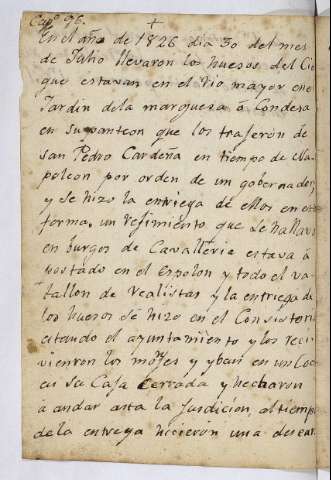 Capº 96.
+
En el año de 1826 dia 30 del mes
de Julio llevaron los huesos del Cid
que estavan en el rio mayor en el
Jardin dela marquesa ó Condesa
en su panteon que los trajeron de
san Pedro Cardeña en tiempo de Na-
poleon por orden de un gobernador,
y se hizo la entriega de ellos en esta
forma, un rejimiento que se hallava
en burgos de Cavalleria estava a
postado en el Espolon y todo el va-
tallon de realistas y la entriega de
los huesos se hizo en el Consistorio
estando el ayuntamiento y los reci
vieron los monjes y yban en un Co
en su Caja Cerrada y hecharon
á andar asta la Jurdicion, al tiempo
de la entrega hicieron una descar